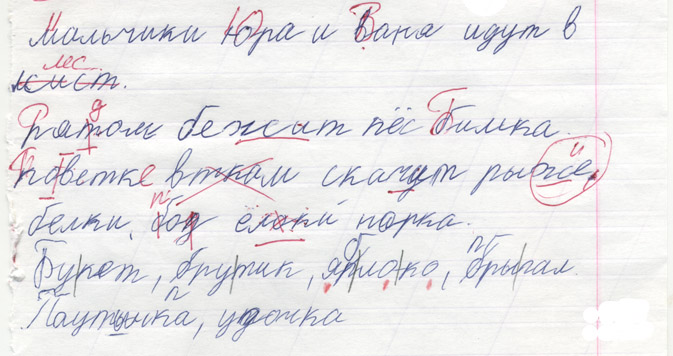 Мальчики Юра и Ваня идут в
лес
лист.
Рятом бежит пёс Бимка.
По ветке скачут рыжие
белки, под ёлкой норка.
Букет, брутик, яблоко, брыгал
Паутинка, удочка